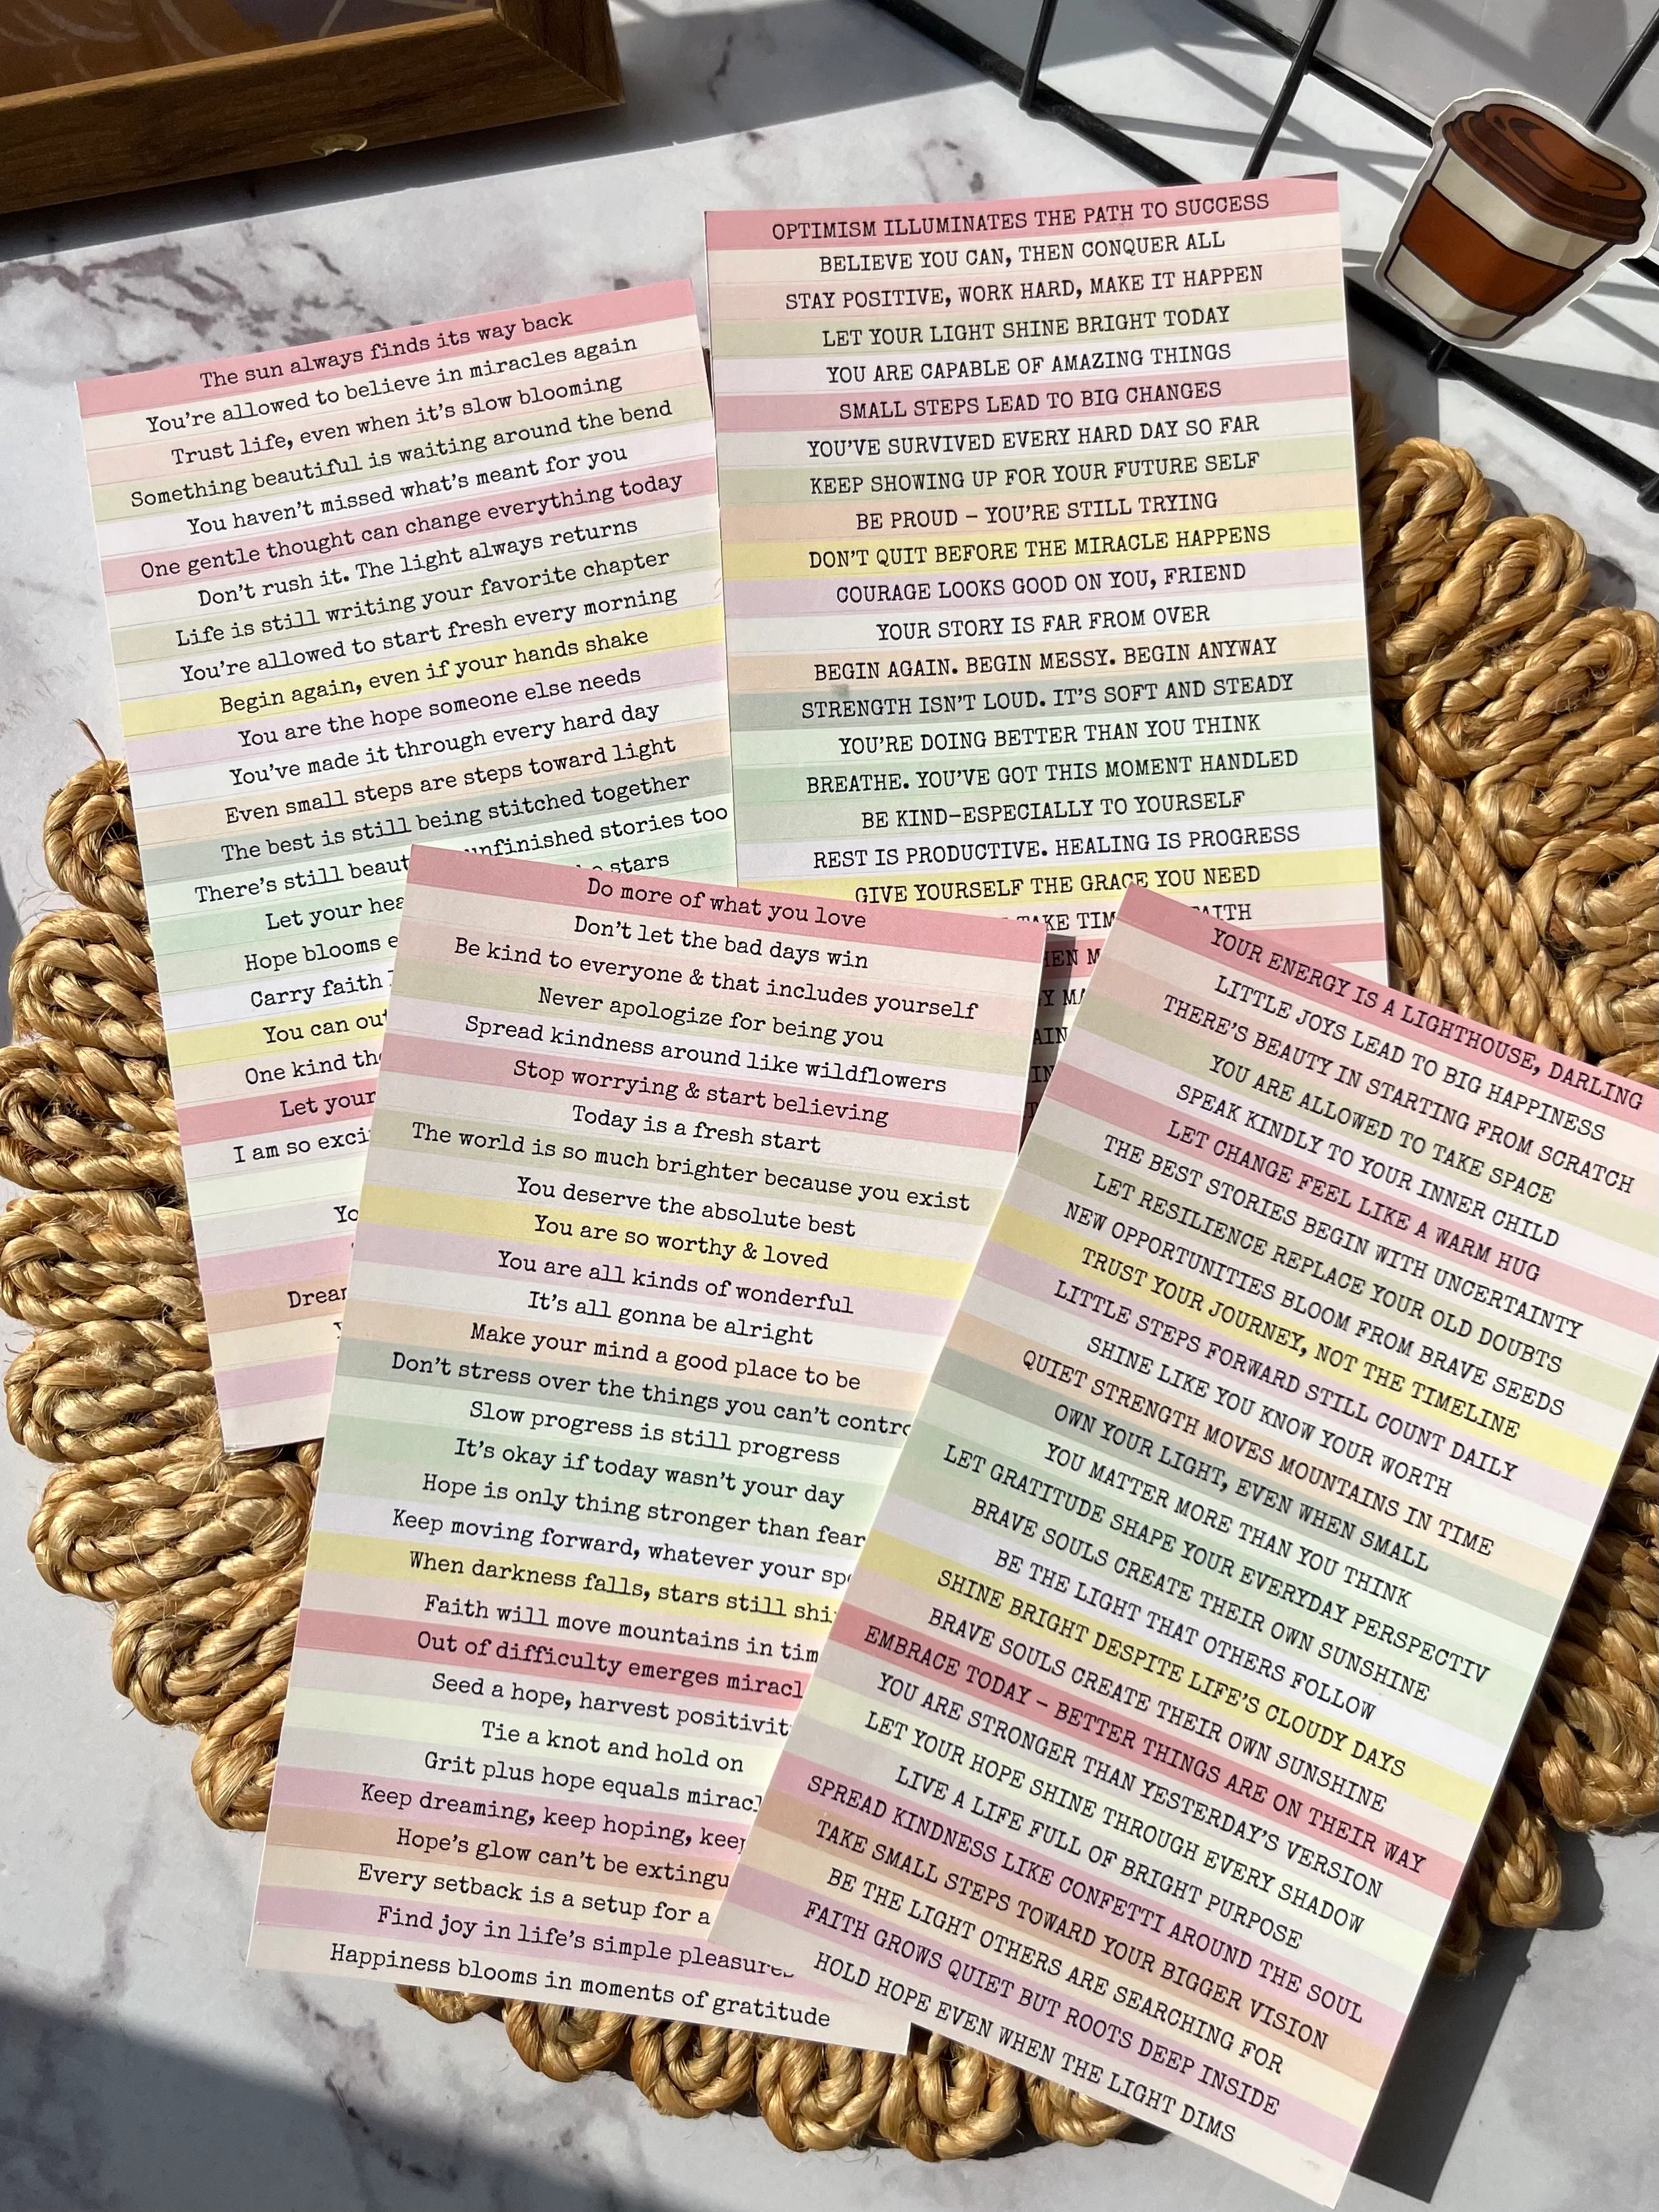 The sun always finds its way back
You're allowed to believe in miracles again
Trust life, even when it's slow blooming
Something beautiful is waiting around the bend
You haven't missed what's meant for you
One gentle thought can change everything today
Don't rush it. The light always returns
Life is still writing your favorite chapter
You're allowed to start fresh every morning
Begin again, even if your hands shake
You are the hope someone else needs
You've made it through every hard day
Even small steps are steps toward light
The best is still being stitched together
There's still unfinished stories too
Let your stars
Hope blooms
Carry faith
You can
One kind
Let your
I am so
OPTIMISM ILLUMINATES THE PATH TO SUCCESS
BELIEVE YOU CAN, THEN CONQUER ALL
STAY POSITIVE, WORK HARD, MAKE IT HAPPEN
LET YOUR LIGHT SHINE BRIGHT TODAY
YOU ARE CAPABLE OF AMAZING THINGS
SMALL STEPS LEAD TO BIG CHANGES
YOU'VE SURVIVED EVERY HARD DAY SO FAR
KEEP SHOWING UP FOR YOUR FUTURE SELF
BE PROUD - YOU'RE STILL TRYING
DON'T QUIT BEFORE THE MIRACLE HAPPENS
COURAGE LOOKS GOOD ON YOU, FRIEND
YOUR STORY IS FAR FROM OVER
BEGIN AGAIN. BEGIN MESSY. BEGIN ANYWAY
STRENGTH ISN'T LOUD. IT'S SOFT AND STEADY
YOU'RE DOING BETTER THAN YOU THINK
BREATHE. YOU'VE GOT THIS MOMENT HANDLED
BE KIND-ESPECIALLY TO YOURSELF
REST IS PRODUCTIVE. HEALING IS PROGRESS
GIVE YOURSELF THE GRACE YOU NEED
TAKE
Do more of what you love
Don't let the bad days win
Be kind to everyone & that includes yourself
Never apologize for being you
Spread kindness around like wildflowers
Stop worrying & start believing
Today is a fresh start
The world is so much brighter because you exist
You deserve the absolute best
You are so worthy & loved
You are all kinds of wonderful
It's all gonna be alright
Make your mind a good place to be
Don't stress over the things you can't contro
Slow progress is still progress
It's okay if today wasn't your day
Hope is only thing stronger than fear
Keep moving forward, whatever your
When darkness falls, stars still
Faith will move mountains in
Out of difficulty emerges
Seed a hope, harvest
Tie a knot and hold on
Grit plus hope equals
Keep dreaming, keep hoping, keep
Hope's glow can't be
Every setback is a setup for a
Find joy in life's simple pleasures
Happiness blooms in moments of gratitude
YOUR ENERGY IS A LIGHTHOUSE, DARLING
LITTLE JOYS LEAD TO BIG HAPPINESS
THERE'S BEAUTY IN STARTING FROM SCRATCH
YOU ARE ALLOWED TO TAKE SPACE
SPEAK KINDLY TO YOUR INNER CHILD
LET CHANGE FEEL LIKE A WARM HUG
THE BEST STORIES BEGIN WITH UNCERTAINTY
LET RESILIENCE REPLACE YOUR OLD DOUBTS
NEW OPPORTUNITIES BLOOM FROM BRAVE SEEDS
TRUST YOUR JOURNEY, NOT THE TIMELINE
LITTLE STEPS FORWARD STILL COUNT DAILY
SHINE LIKE YOU KNOW YOUR WORTH
QUIET STRENGTH MOVES MOUNTAINS IN TIME
OWN YOUR LIGHT, EVEN WHEN SMALL
YOU MATTER MORE THAN YOU THINK
LET GRATITUDE SHAPE YOUR EVERYDAY PERSPECTIV
BRAVE SOULS CREATE THEIR OWN SUNSHINE
BE THE LIGHT THAT OTHERS FOLLOW
SHINE BRIGHT DESPITE LIFE'S CLOUDY DAYS
BRAVE SOULS CREATE THEIR OWN SUNSHINE
EMBRACE TODAY - BETTER THINGS ARE ON THEIR WAY
YOU ARE STRONGER THAN YESTERDAY'S VERSION
LET YOUR HOPE SHINE THROUGH EVERY SHADOW
LIVE A LIFE FULL OF BRIGHT PURPOSE
SPREAD KINDNESS LIKE CONFETTI AROUND THE SOUL
TAKE SMALL STEPS TOWARD YOUR BIGGER VISION
BE THE LIGHT OTHERS ARE SEARCHING FOR
FAITH GROWS QUIET BUT ROOTS DEEP INSIDE
HOLD HOPE EVEN WHEN THE LIGHT DIMS